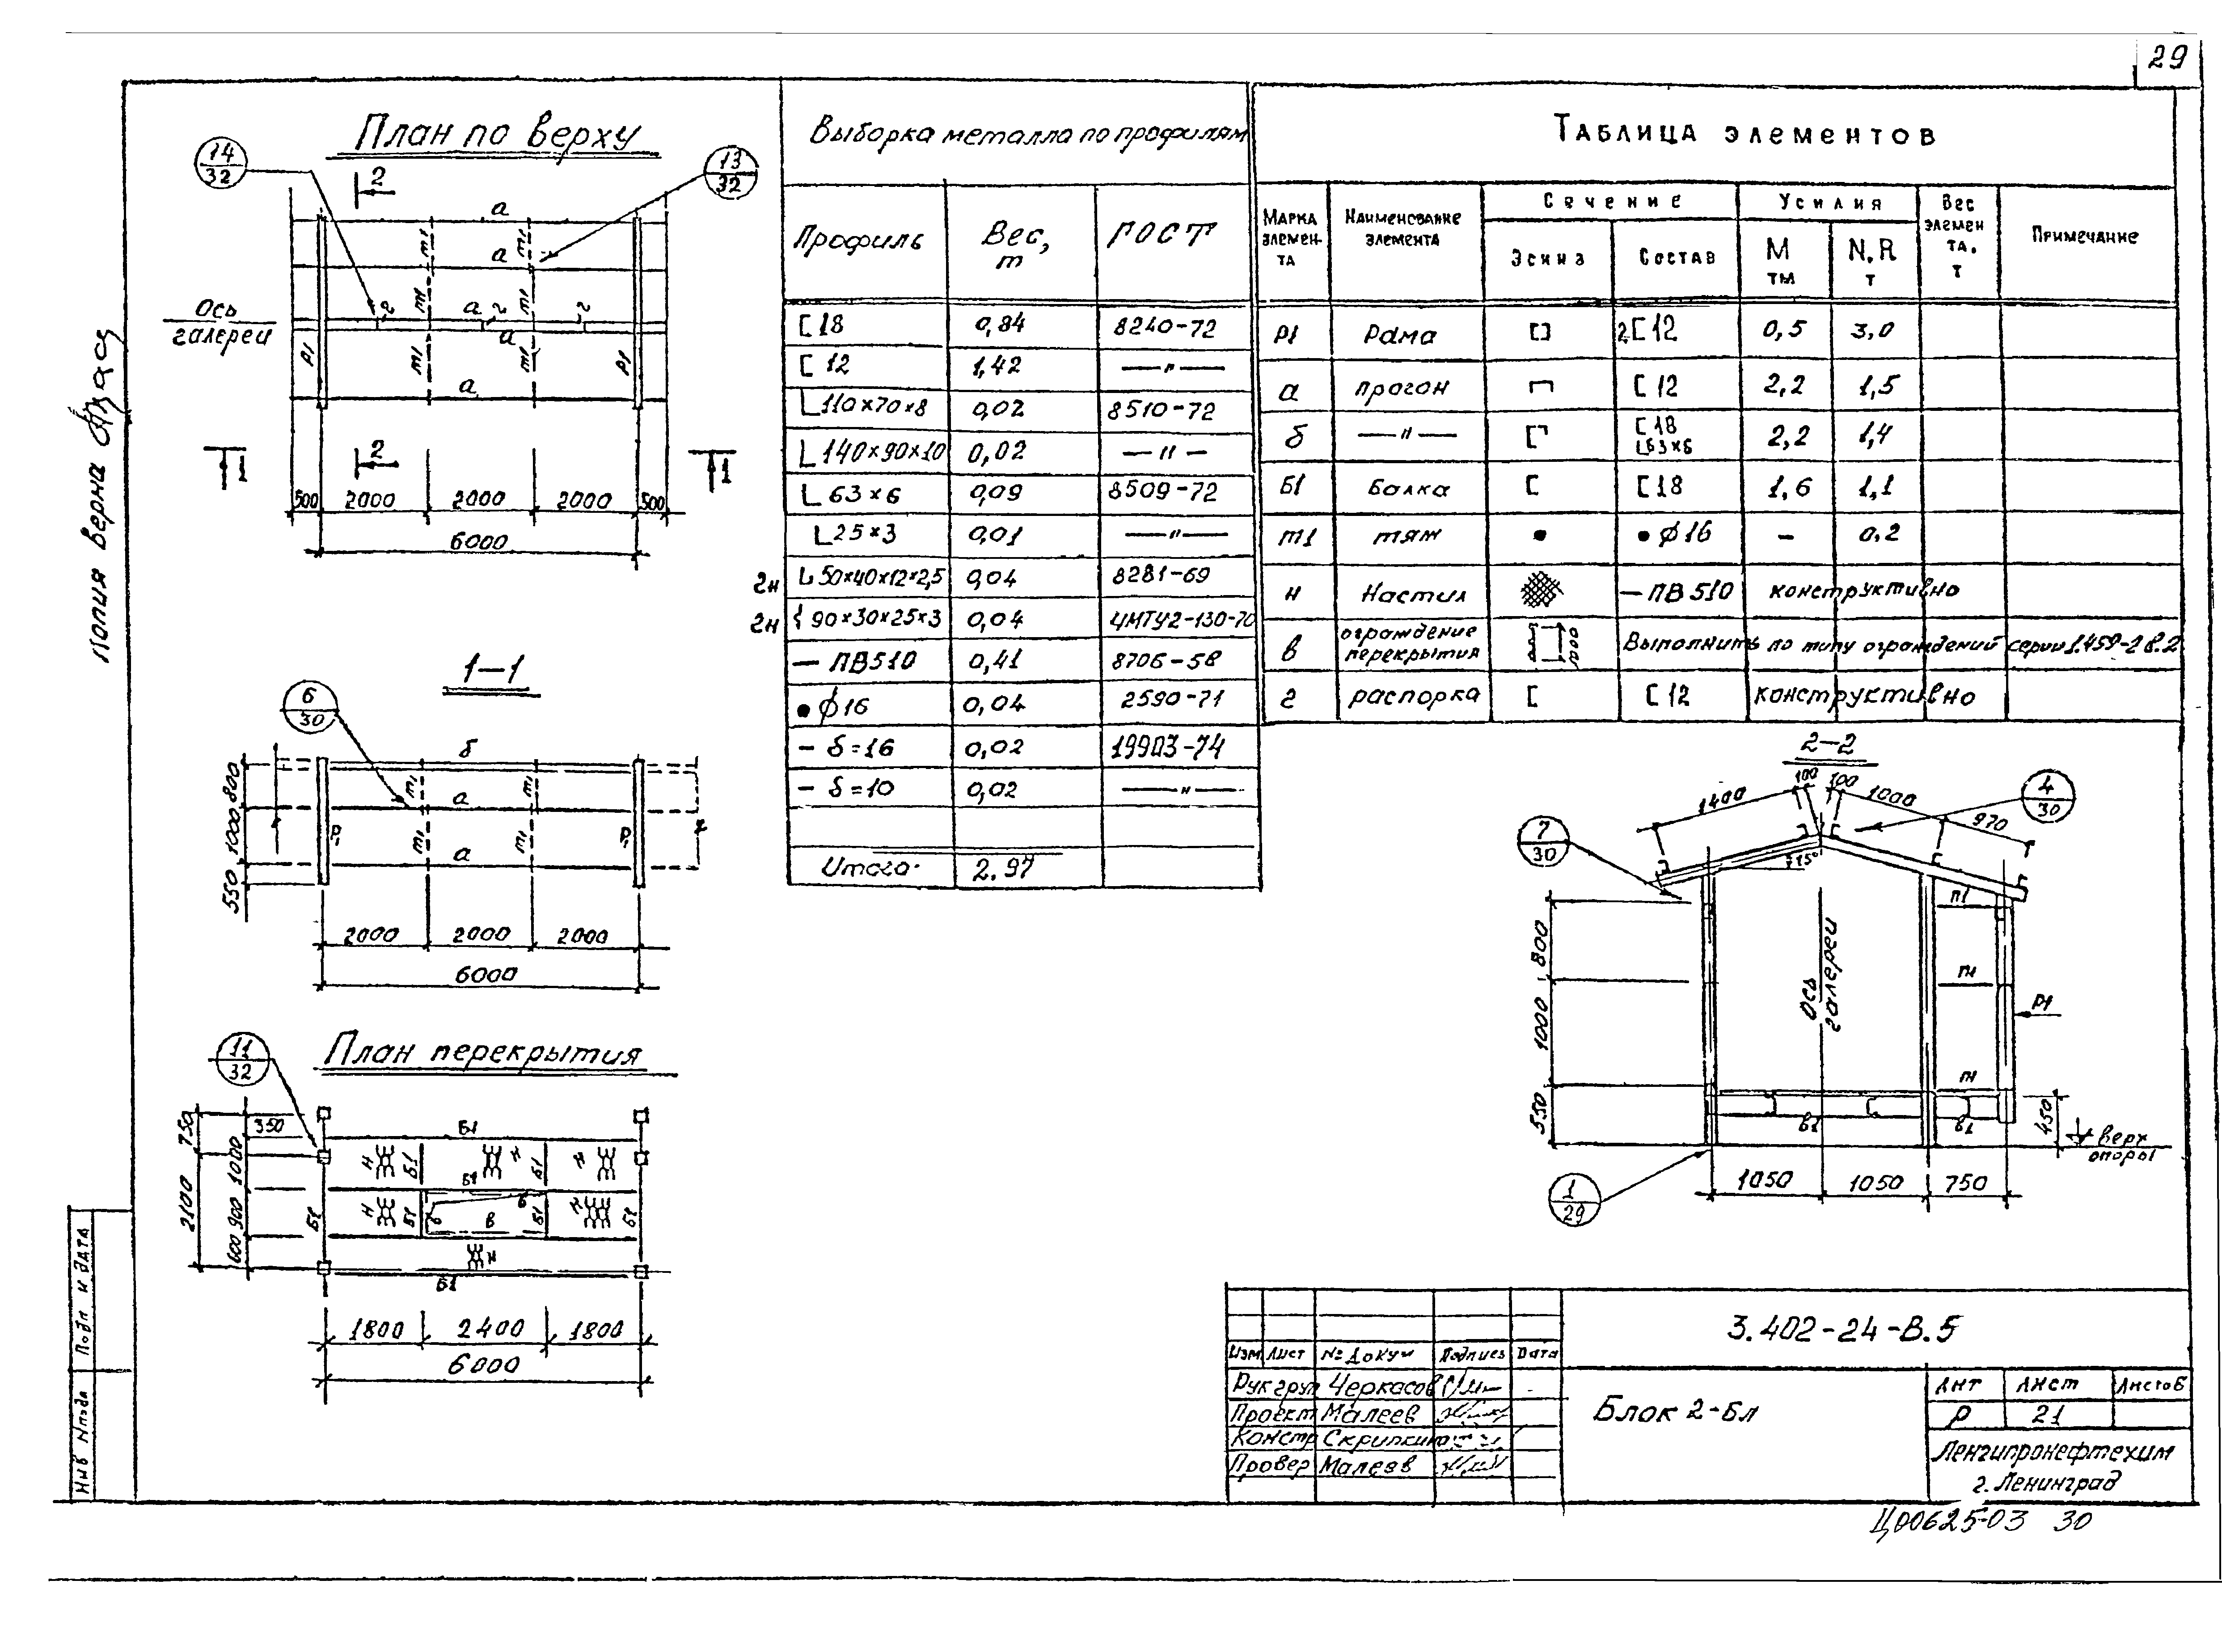 29
План по верху
14
32
13
32
2
а
а
а
а
а
т1 т1
т1 т1
т1 т1
г г г
Р1 Р1
Ось
галереи
2
1 1
500 2000 2000 2000 500
6000
1-1
6
30
б
а
а
т1 т1
т1 т1
Р1 Р1
800
1000
550
2000 2000 2000
6000
План перекрытия
11
32
750
2100
350
1000
900
600
Б1
Н Б1 Н Б1 Н
Б1
Б1 Н Б1 б в б Б1 Н Б1
Н
Б1
1800 2400 1800
6000
Выборка металла по профилям
Профиль Вес, т ГОСТ
[ 18 0,84 8240-72
[ 12 1,42 —"—
L 110×70×8 0,02 8510-72
L 140×90×10 0,02 —"—
L 63×6 0,09 8509-72
L 25×3 0,01 —"—
гн L 50×40×12×2,5 0,04 8281-69
гн { 90×30×25×3 0,04 ЧМТУ2-130-70
— ПВ510 0,41 8706-58
● ϕ16 0,04 2590-71
- δ=16 0,02 19903-74
- δ=10 0,02 —"—
Итого 2.97
Таблица элементов
Марка элемента Наименование элемента Сечение Усилия Вес элемента, т Примечание
Эскиз Состав М тм N, R т
Р1 Рама 2[12 0,5 3,0
а прогон [12 2,2 1,5
б —"— [18 L63×6 2,2 1,4
Б1 Балка [ [18 1,6 1,1
т1 тяж ● ● ϕ16 - 0,2
н Настил — ПВ510 конструктивно
в ограждение перекрытия 1000 Выполнить по типу ограждений серии 1.459-2 в.2
г распорка [ [12 конструктивно
2-2
1400 100 100 1000 970
4
30
7
30
15°
800
1000
550
Ось
галереи
П1
П1
П1
Р1
Б1 Б1
450
верх
опоры
1050 1050 750
1
29
3.402-24-В.5
Изм Лист № Докум Подпись Дата
Рук груп Черкасов
Проект Малеев
Констр Скрипкина
Провер Малеев
Блок 2-Бл
Лит Лист Листов
Р 21
Ленгипронефтехим
г. Ленинград
Ц00625-03 30
Копия верна
Подп и дата
Инв № подл